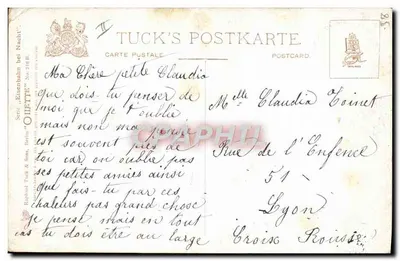 II
TUCK'S POSTKARTE
CARTE POSTALE
POSTCARD.
Serie „Eisenbahn bei Nacht"
"OILETTE"
Raphael Tuck & Sons
Ma Chère petite Claudia
que dois tu penser de
moi que je t oublie
mais non ma pensée
est souvent près de
toi car on oublie pas
ses petites amies ainsi
que fais-tu par ces
chaleurs pas grand chose
je pense mais en tout
cas tu dois être au large
Melle Claudia Toinet
Rue de l'Enfance
51
Lyon
Croix Rousse
CPAPHIL.COM